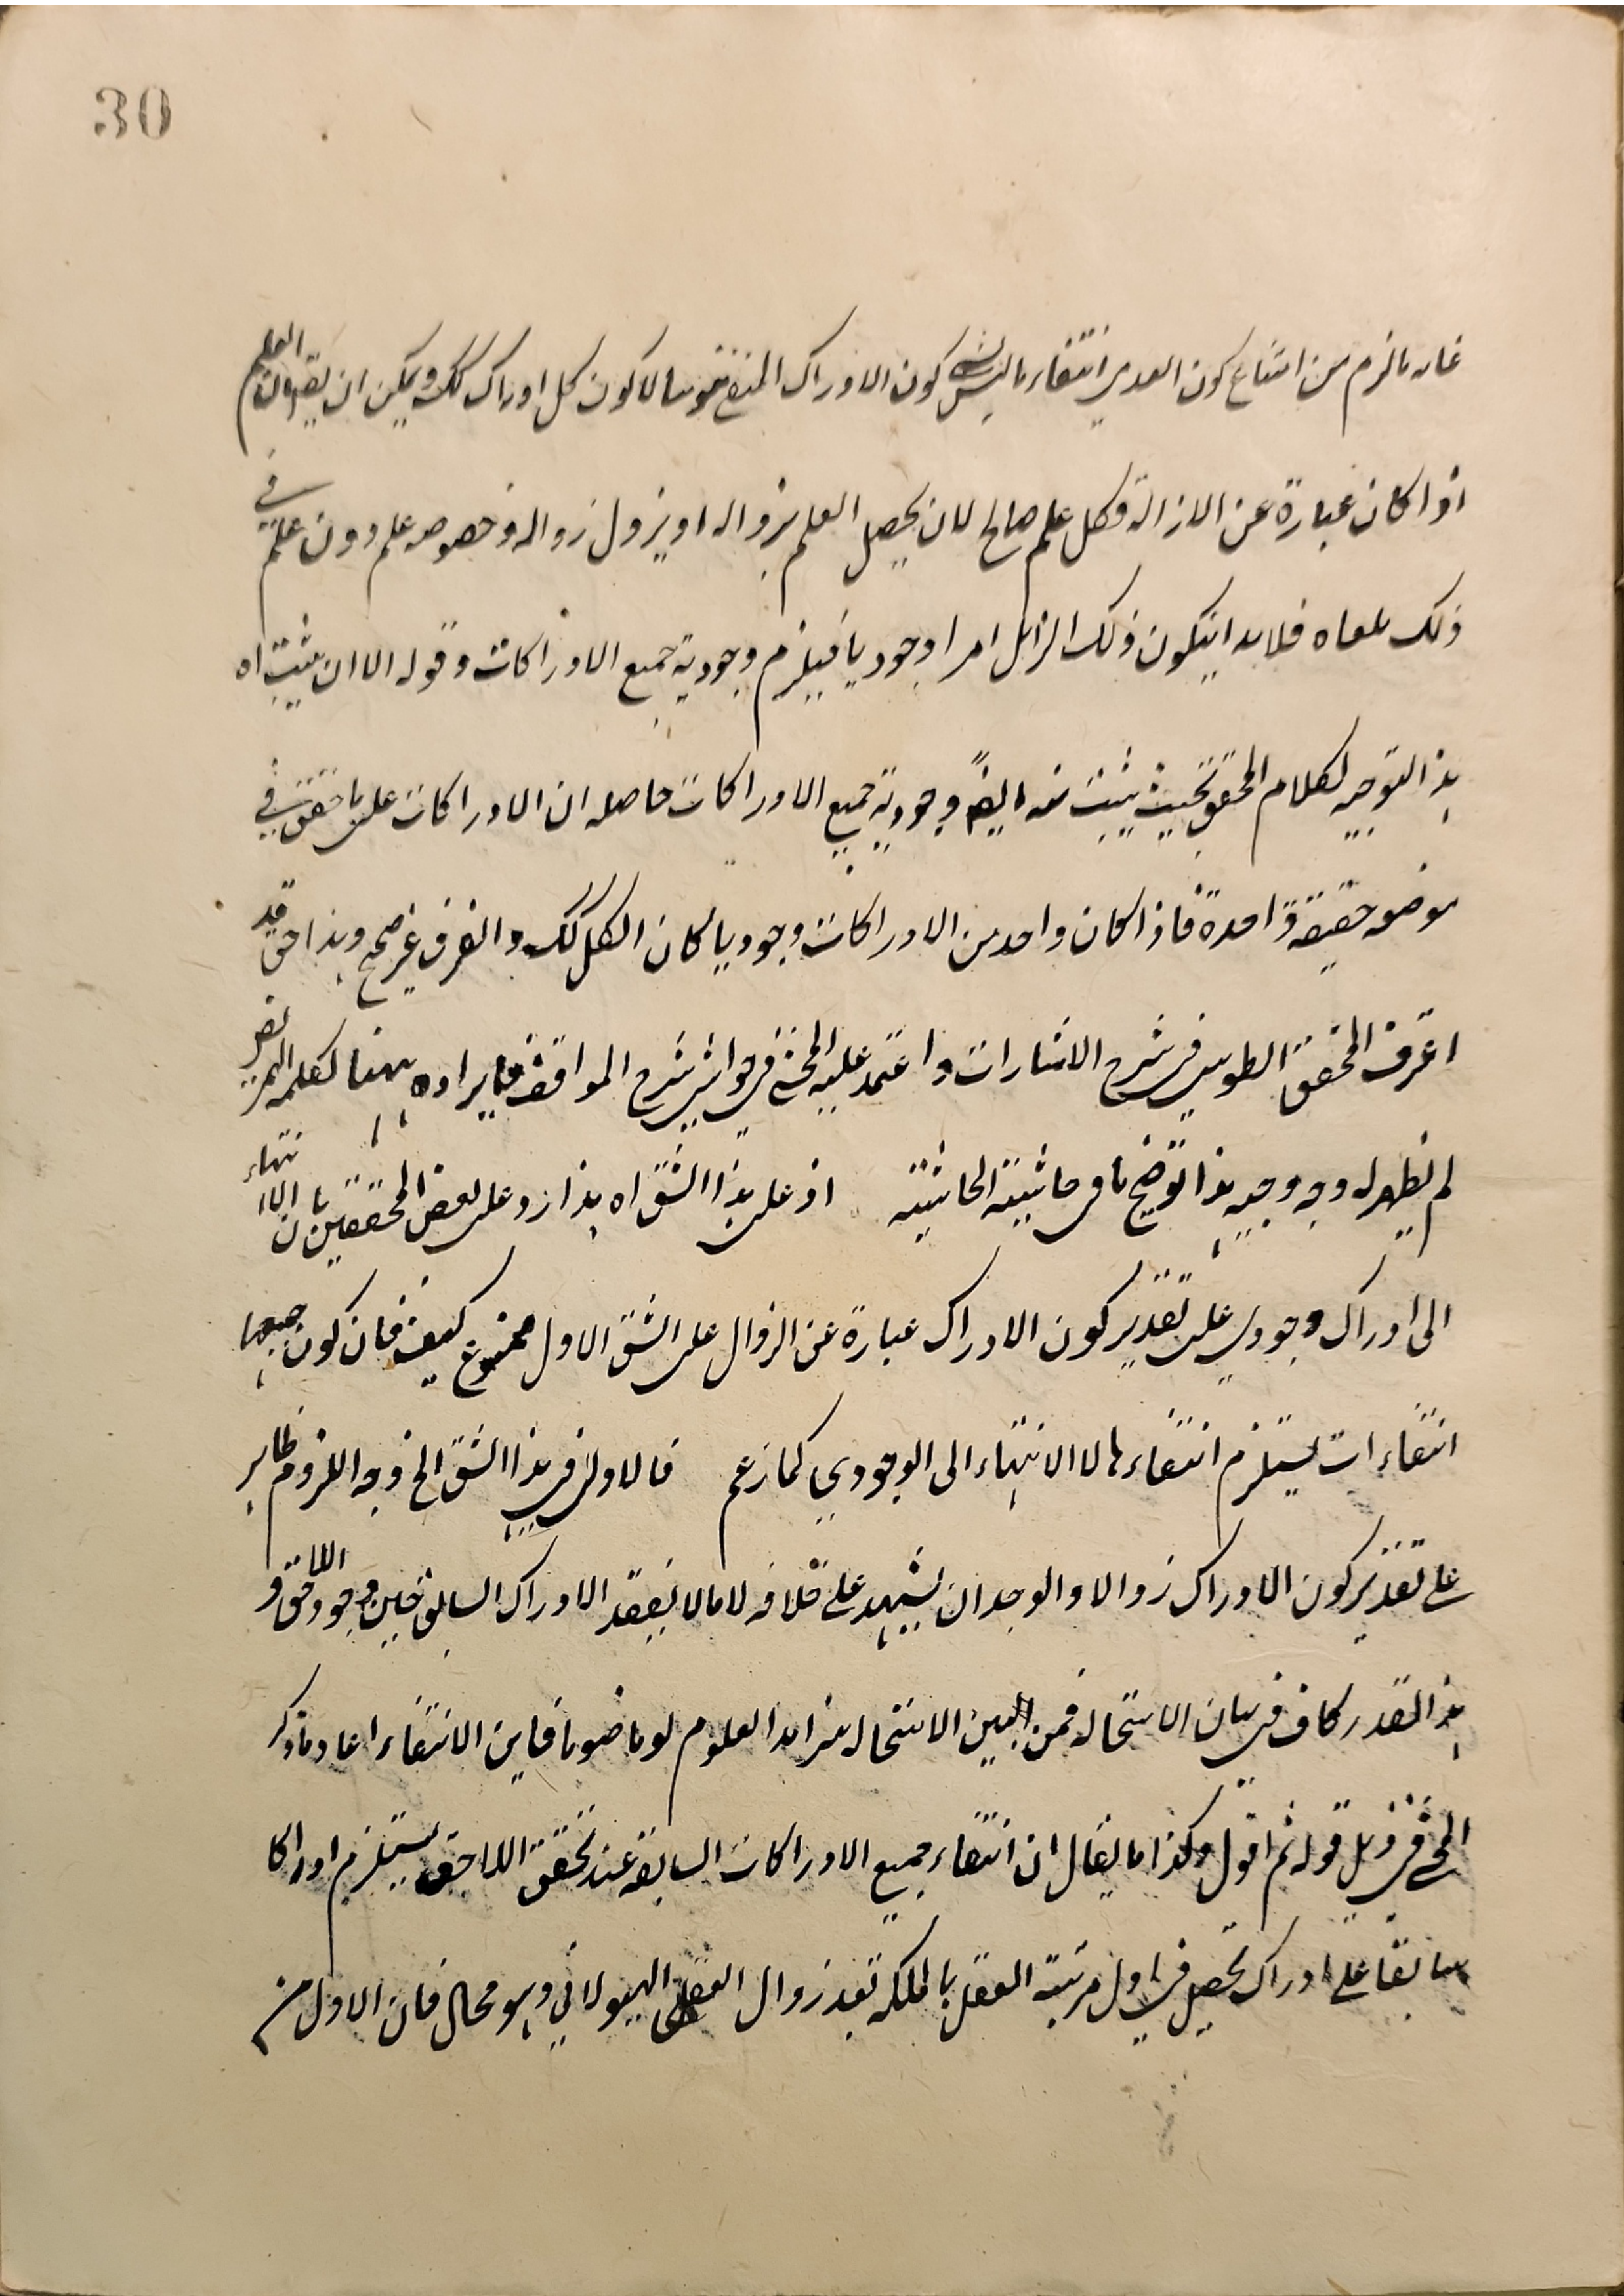 30
غاية ما لزم من امتناع كون العدمي انتفاء ما ليس كون الادراك المنتفي ثبوتيا لا كون كل ادراك كذلك ويمكن ان يقرر بان العلم
اذا كان عبارة عن الازالة فكل علم صالح لان يحصل العلم بزواله او يزول زواله وخصوصه علم دون علم في
ذلك ملغاه فلا بد ان يكون ذلك الزائل امرا وجوديا فيلزم وجودية جميع الادراكات وقوله الا ان يثبت اه
هذا التوجيه لكلام المحقق بحيث يثبت منه ايضا وجودية جميع الادراكات حاصله ان الادراكات على ما حقق في
موضعه حقيقة واحدة فاذا كان واحد من الادراكات وجوديا كان الكل كذلك والفرق غير صحيح وهذا حق قد
اعترف المحقق الطوسي في شرح الاشارات واعتمد عليه المحشي في حواشي شرح المواقف فايراده ههنا كعلمه المريض
لم يظهر له وجه وجيه هذا توضيح ما في حاشية الحاشية اذ على هذا الشق اه هذا رد على بعض المحققين بان الانتهاء
الى ادراك وجودي على تقدير كون الادراك عبارة عن الزوال على الشق الاول ممنوع كيف فان كون جميعها
انتفاءات يستلزم انتفاءها لا الانتهاء الى الوجودي كما زعم فالاولى في هذا الشق الخ وجه اللزوم ظاهر
على تقدير كون الادراك زوالا والوجدان يشهد على خلافه لاما لا نفقد الادراك السابق حين وجود اللاحق و
هذا القدر كاف في بيان الاستحالة فمن البين الاستحالة تزايد العلوم يوما فيوما فاين الانتفاء اعاد ما ذكر
المحشي في ذيل قوله ثم اقول وكذا ما يقال ان انتفاء جميع الادراكات السابقة عند تحقق اللاحق يستلزم ادراكا
سابقا على ادراك يحصل في اول مرتبة العقل بالملكة بعد زوال العقل الهيولاني وهو محال فان الاول من